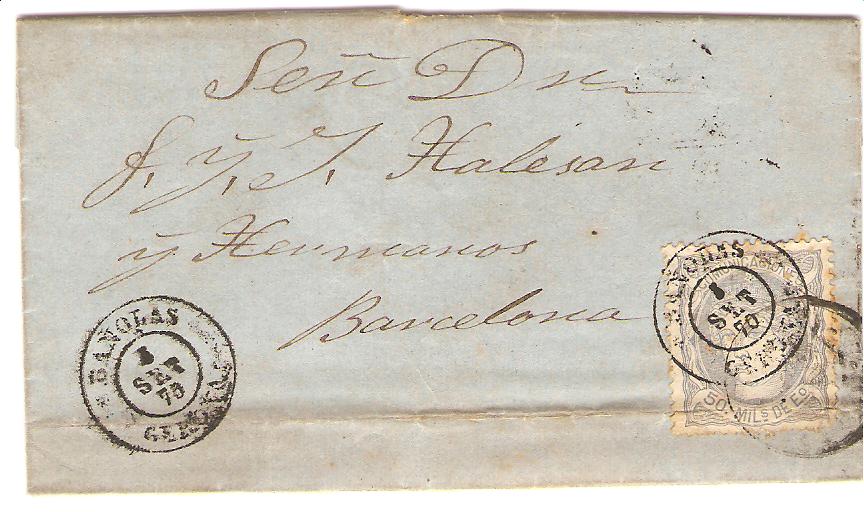 Señ Dn
J. y. J. Halesan
y Hermanos
Barcelona
BAÑOLAS
1
SET
70
GERONA
BAÑOLAS
1
SET
70
GERONA
COMUNICACIONES
50. MILS DE Eo.